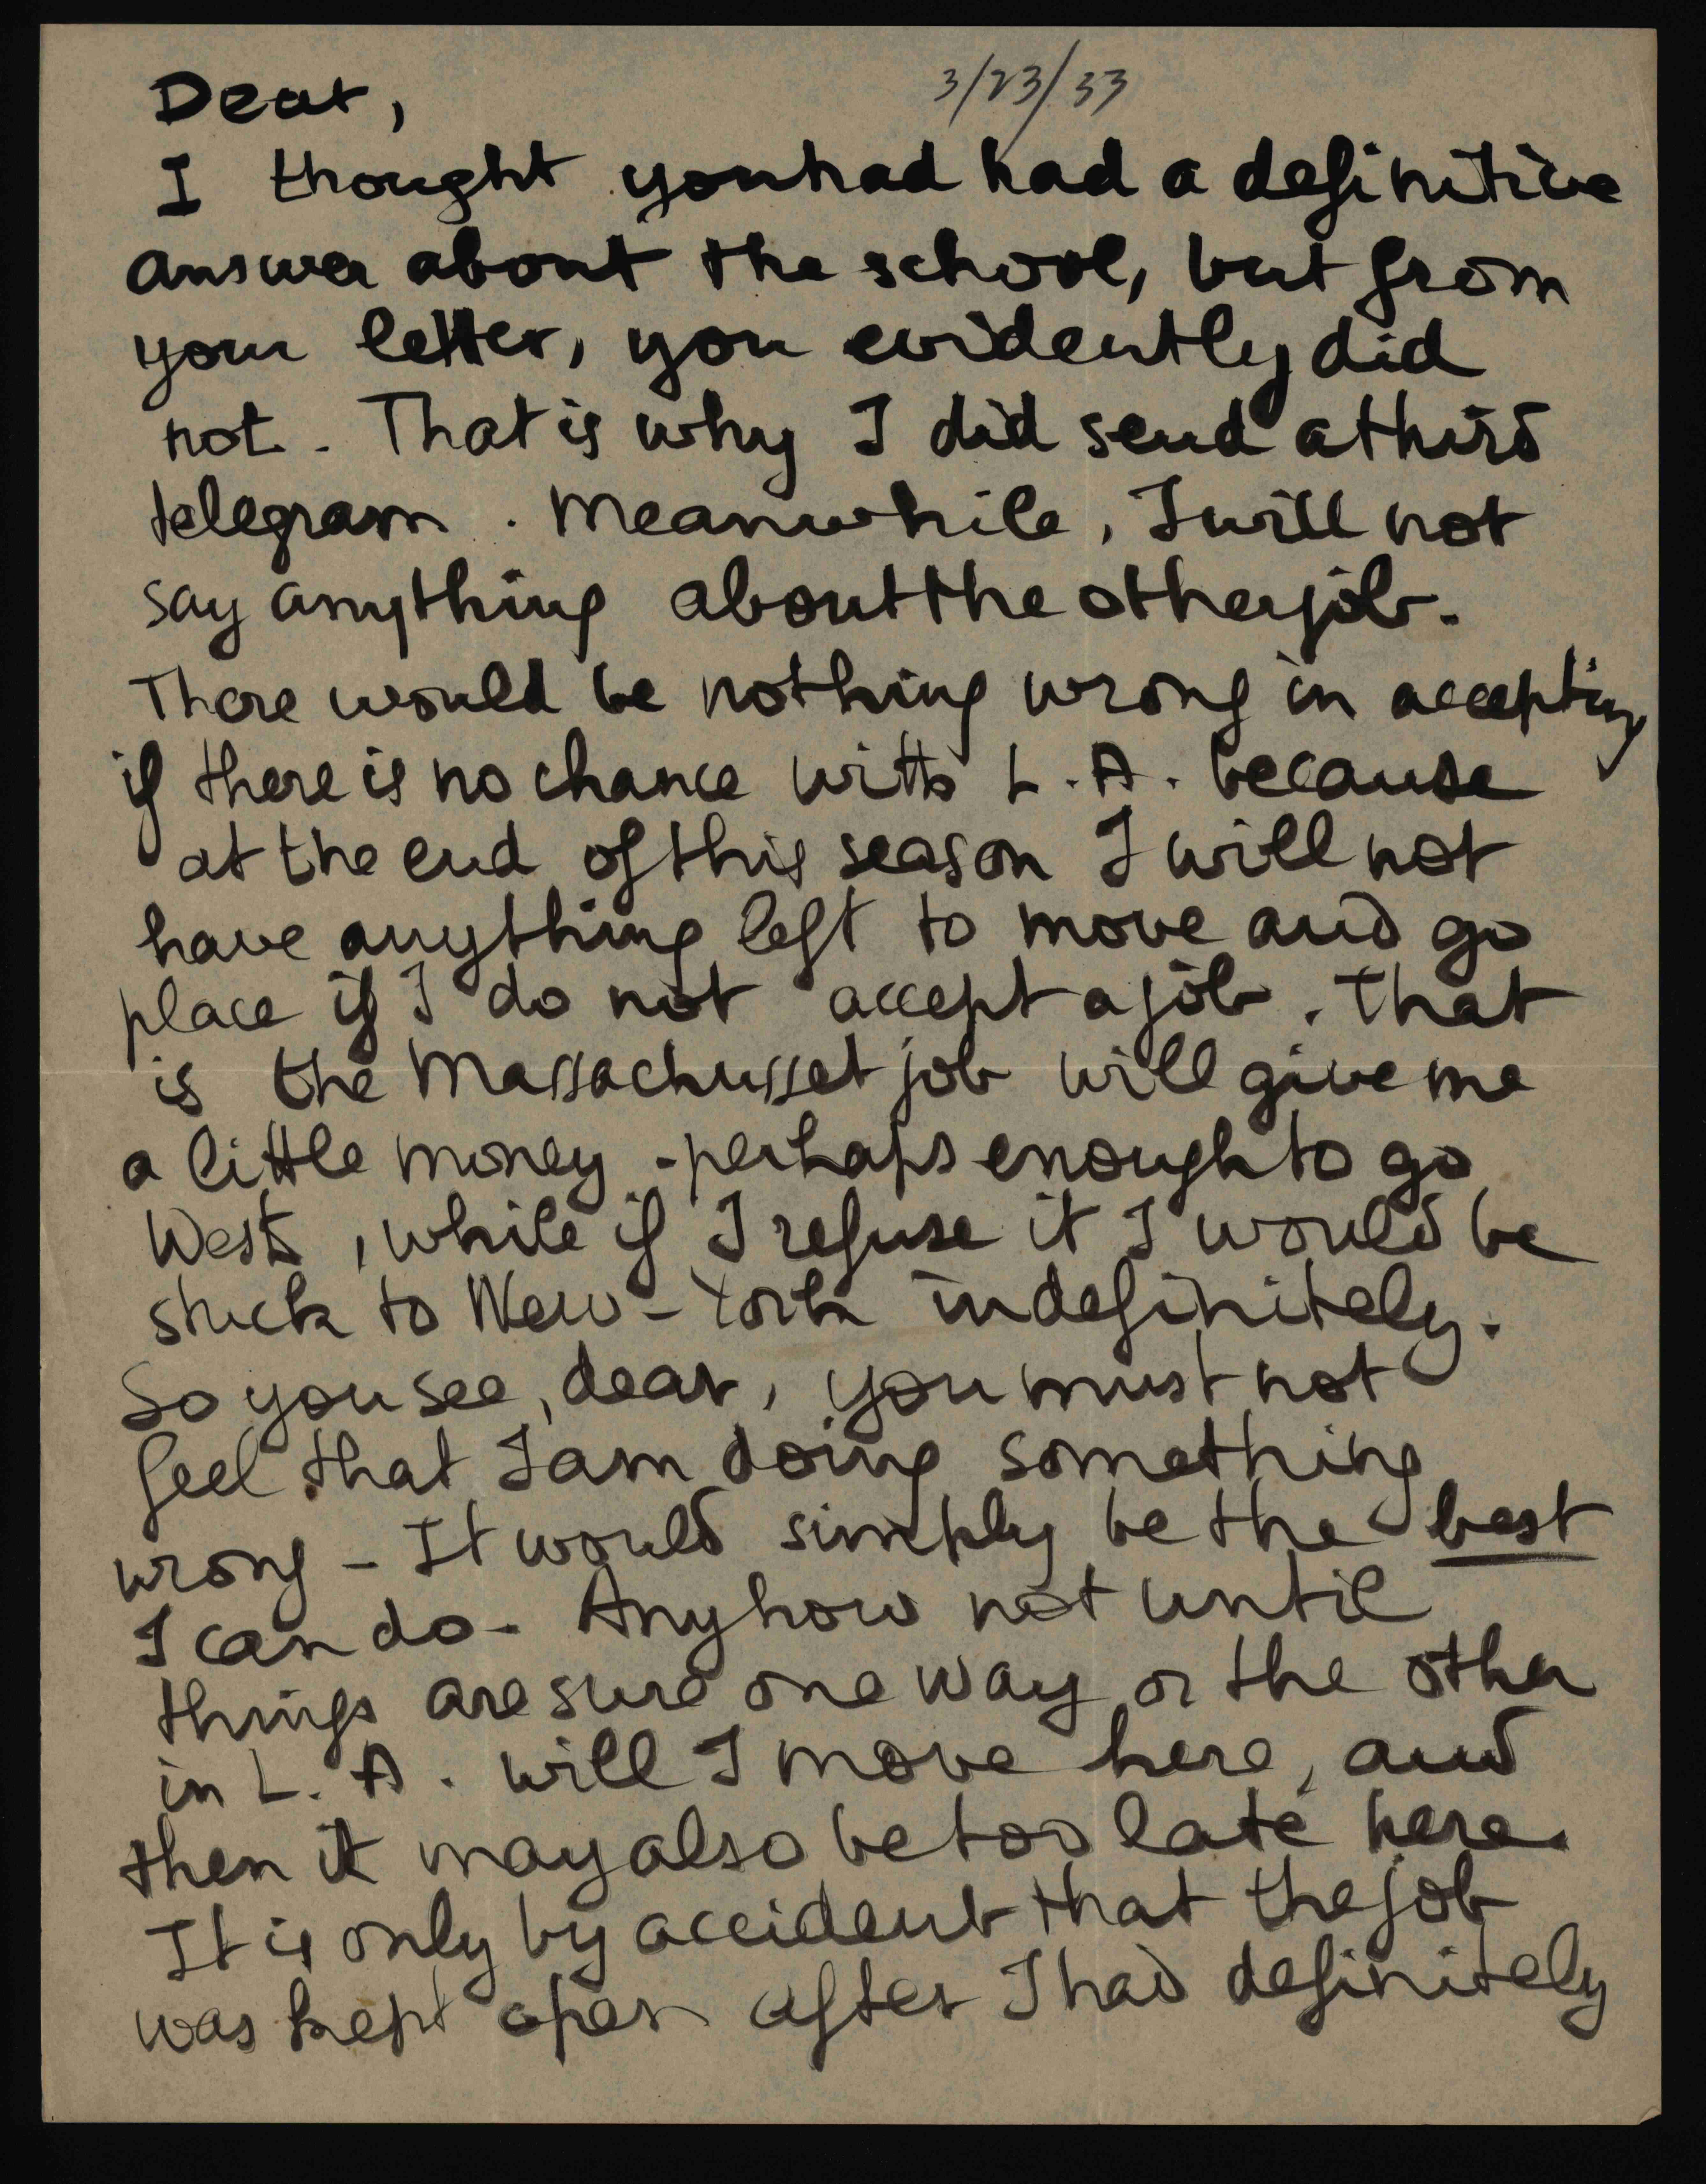 3/23/33
Dear,
I thought you had had a definitive
answer about the school, but from
your letter, you evidently did
not. That is why I did send a third
telegram. Meanwhile, I will not
say anything about the other job.
There would be nothing wrong in accepting
if there is no chance with L.A. because
at the end of this season I will not
have anything left to move and go
place if I do not accept a job. That
is the Massachusset job will give me
a little money - perhaps enough to go
West, while if I refuse it I would be
stuck to New-York indefinitely.
So you see, dear, you must not
feel that I am doing something
wrong - It would simply be the best
I can do - Anyhow not until
things are sure one way or the other
in L.A. will I move here, and
then it may also be too late here.
It is only by accident that the job
was kept open after I had definitely